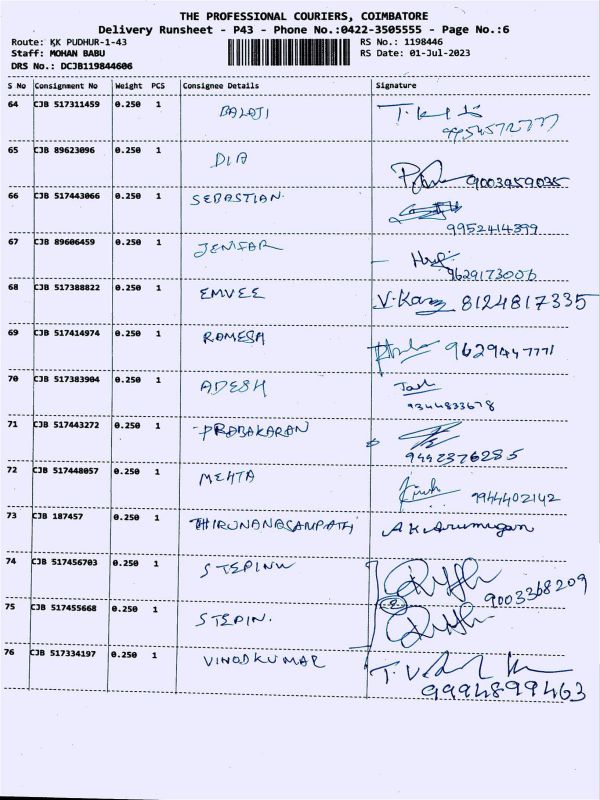 THE PROFESSIONAL COURIERS, COIMBATORE
Delivery Runsheet - P43 - Phone No.:0422-3505555 - Page No.:6
Route: KK PUDHUR-1-43 RS No.: 1198446
Staff: MOHAN BABU RS Date: 01-Jul-2023
DRS No.: DCJB119844606
S No Consignment No Weight PCS Consignee Details Signature
64 CJB 517311459 0.250 1 BALAJI
65 CJB 89623096 0.250 1 DIA 9003959035
66 CJB 517443066 0.250 1 SEBASTIAN. 9952414399
67 CJB 89606459 0.250 1 JENIFAR 9629173006
68 CJB 517388822 0.250 1 EMVEE 8124817335
69 CJB 517414974 0.250 1 RAMESH 9629447771
70 CJB 517383904 0.250 1 ADESH 9344833678
71 CJB 517443272 0.250 1 PRABAKARAN 9442376285
72 CJB 517448057 0.250 1 MEHTA 9944402142
73 CJB 187457 0.250 1 THIRUNANASAMPATH A K Arumugam
74 CJB 517456703 0.250 1 STEPINW 9003368209
75 CJB 517455668 0.250 1 STEPIN.
76 CJB 517334197 0.250 1 VINODKUMAR
9994899463